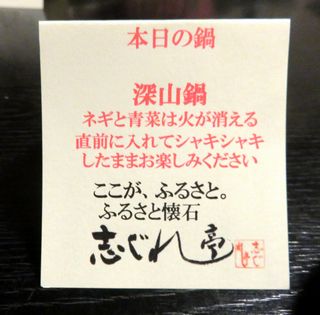 本日の鍋
深山鍋
ネギと青菜は火が消える
直前に入れてシャキシャキ
したままお楽しみください
ここが、ふるさと。
ふるさと懐石
志ぐれ亭